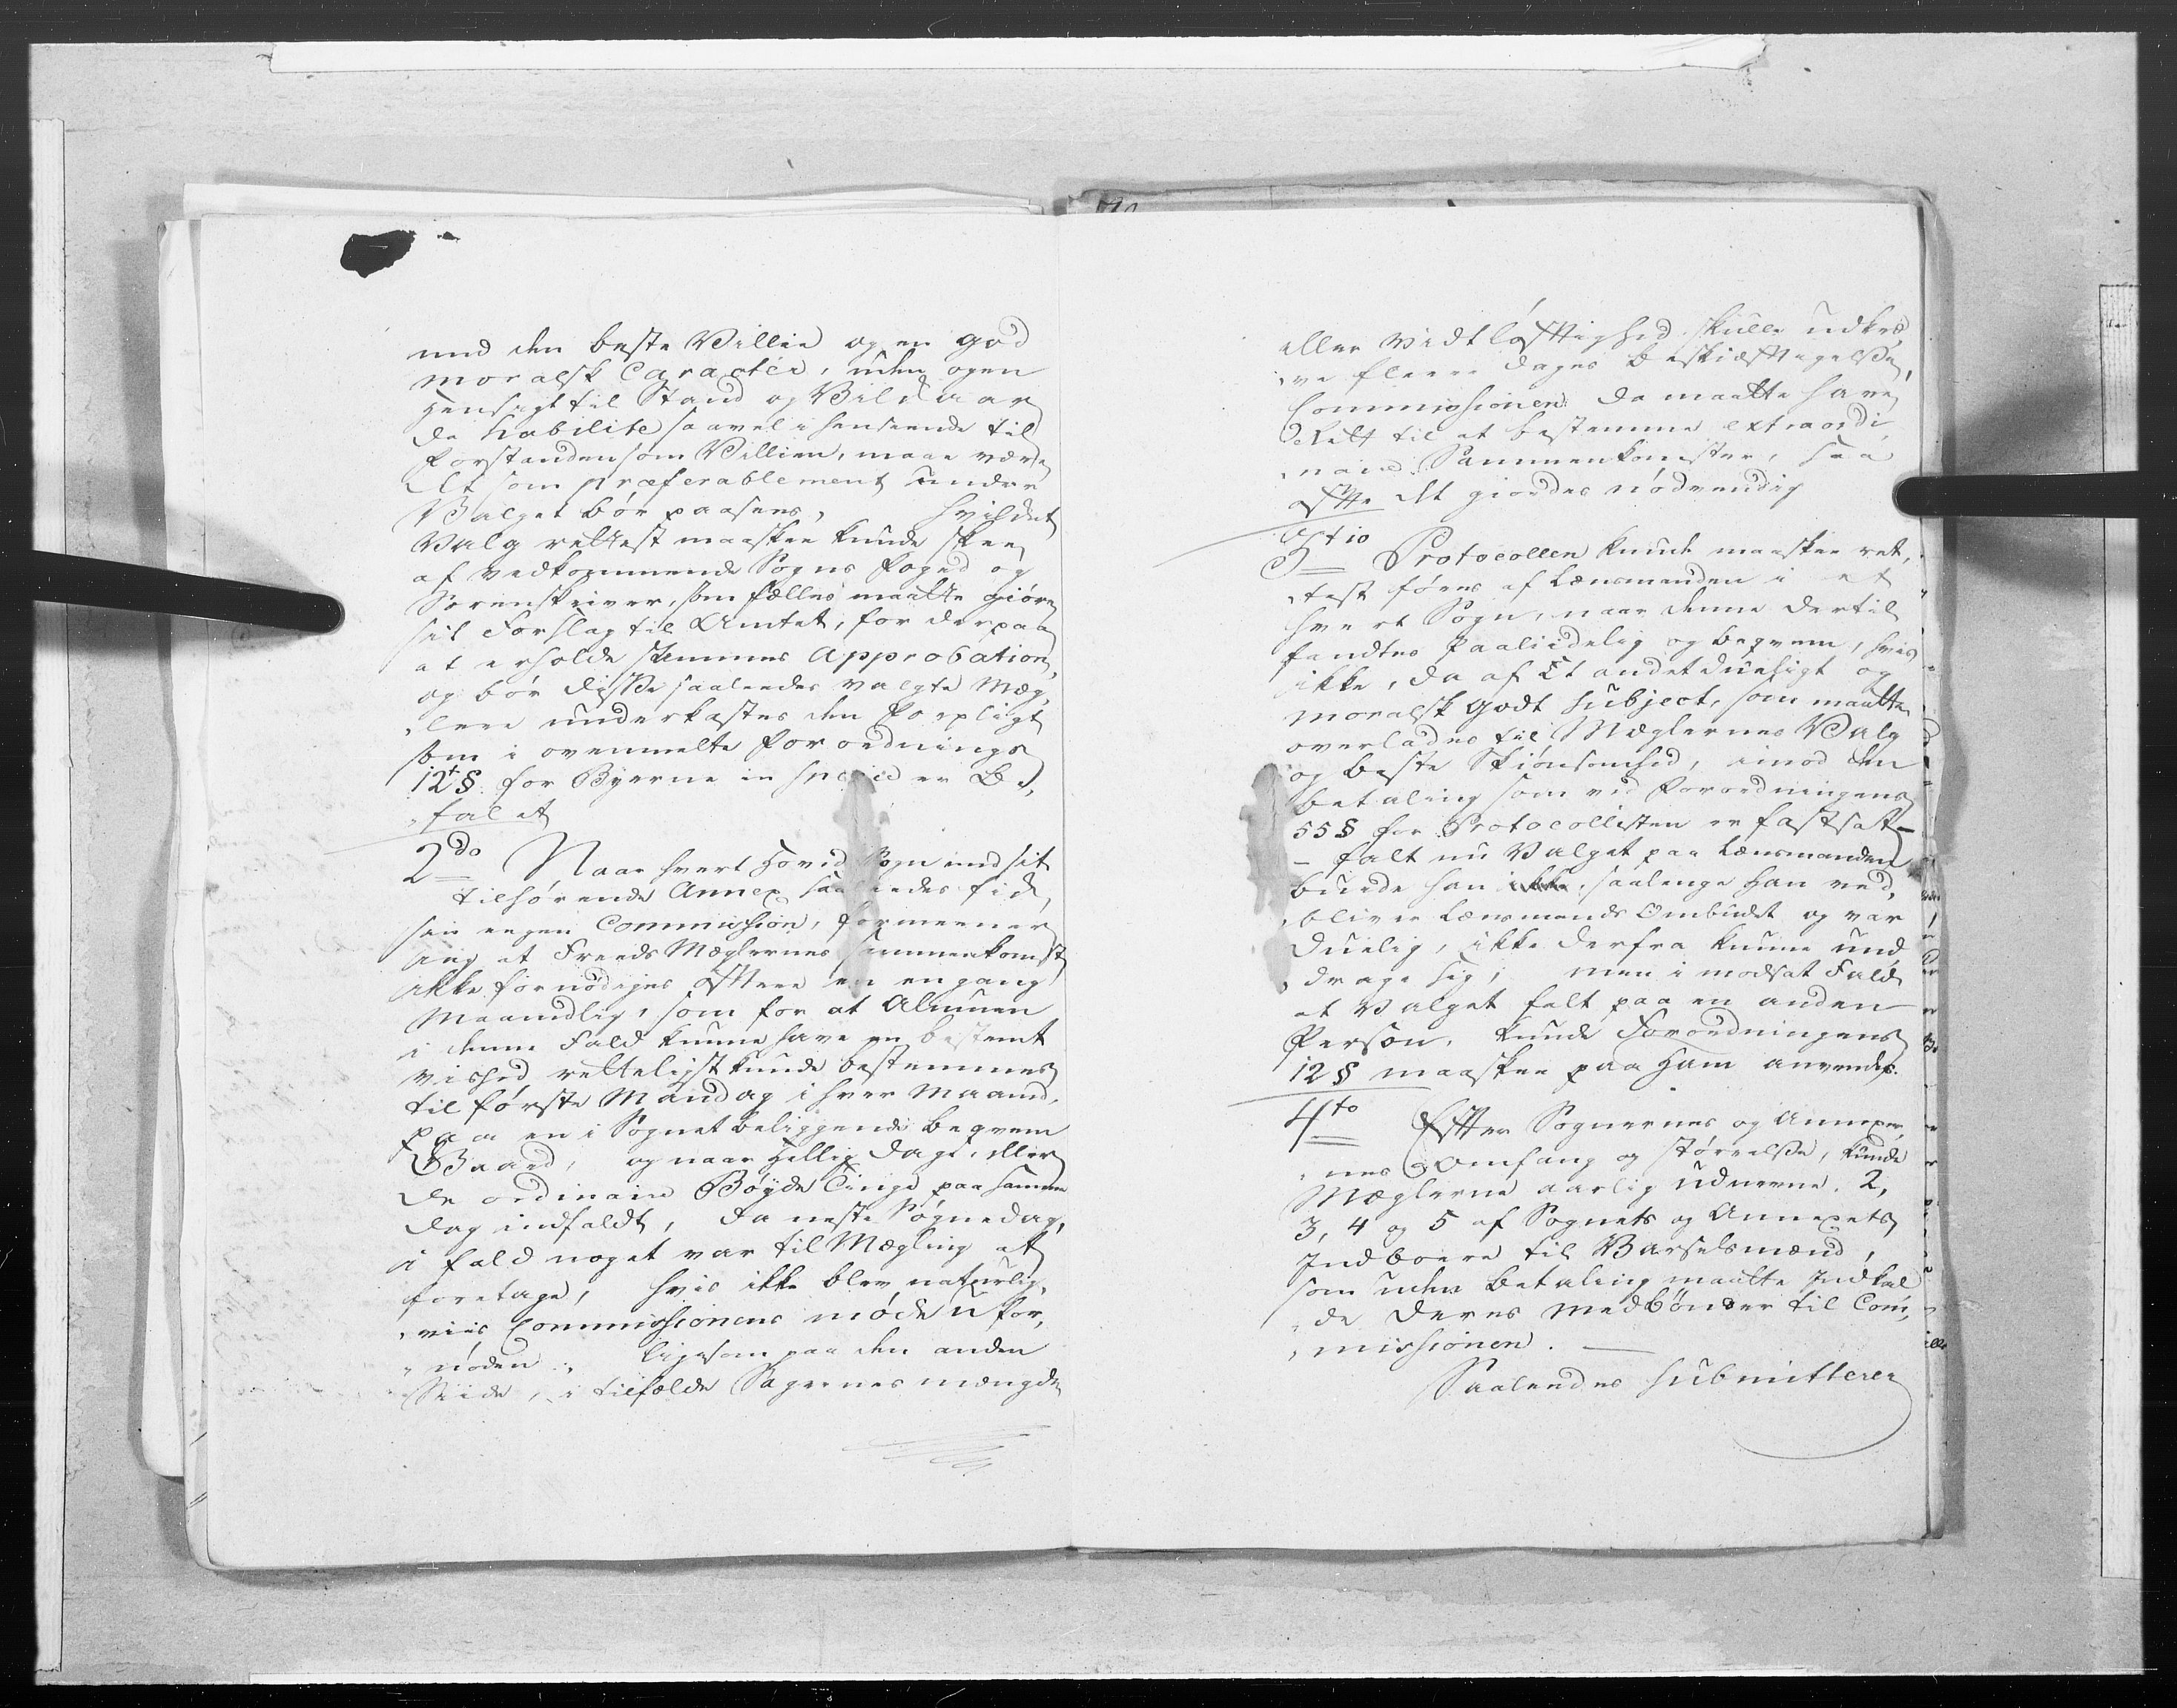 med den beste Villie og en god
moralsk Caractér, uden ogen
Hensigt til Stand og Vilkaar
da habilité saavel i henseende til
Forstanden som Villien, maae være
det som præferablement under
Valget bør paasees, hvilchet
Valg rettest maaskee kunde skee
af vedkommende Sogns Foged og
Sorenskriver, som fælles maatte giøre
sit Forslag til Amtet, for derpaa
at erholde sammes Approbation,
og bør disse saaleedes valgte Mæg,
"lere underkastes den Forpligt
som i ovenmelte Forordnings
12t §. for Byerne in specie er Be,
"falet
2do Naar hvert Hovid Sogn med sit
tilhørende Annex saaleedes fik
sin egen Commission, formeener
ieg at Freeds Mæglernes Sammenkomst
ikke fornødiges oftere en engang
Maanedlig, som for at Almuen
i denne Fald kunne have en bestemt
vished retteligst kunde bestemmes
til første Mandag i hver Maaned,
paa en i Sognet beliggende beqvem
Gaard, og naar Hellig Dage, eller
de ordinaire Bøyde Tinge paa samme
dag indfaldt, da neste Søgnedag,
i fald noget var til Mægling at
foretage, hvis ikke blev naturlig,
"viis Commissionens møde ufor,
"nøden ligesom paa den anden
Siide, i tilfælde Sagernes mængde
eller Vidtløftighed skulle udkræ,
"ve fleere dages beskiæftigelse,
Commissionen da maatte have
Rett til at bestemme extraordi,
"naire Sammenkomster, saa
ofte det giordes nødvendig
3tio Protocollen kunde maaskee ret,
"test føres af Lænsmanden i et
hvert Sogn, naar denne dertil
fandtes Paaliidelig og beqvem, hvis
ikke, da af Et andet dueligt og
moralsk godt Subject, som maatte
overlades til Mæglernes Valg
og beste Skiønsomhed, imod den
betaling som ved Forordningens
55 § for Protocollisten er fastsat –
– falt nu Valget paa Lænsmanden
burde han ikke, saalenge han ved,
"bliver Lænsmands Ombudet og var
duelig, ikke derfra kunne und,
"drage sig; men i modsat Fald
at Valget falt paa en anden
Person, kunde Forordningens
12 § maaskee paa Ham anvendes.
4to Efter Sognernes og Annexer,
"nes Omfang og størrelse, kunde
Mæglerne aarlig udnevne 2,
3, 4 og 5 af Sognets og Annexets
Indboere til Varselsmænd,
som uden betaling maatte Indkal
"de deres medbønder til Com,
"missionen. —
Saaleedes submitterer